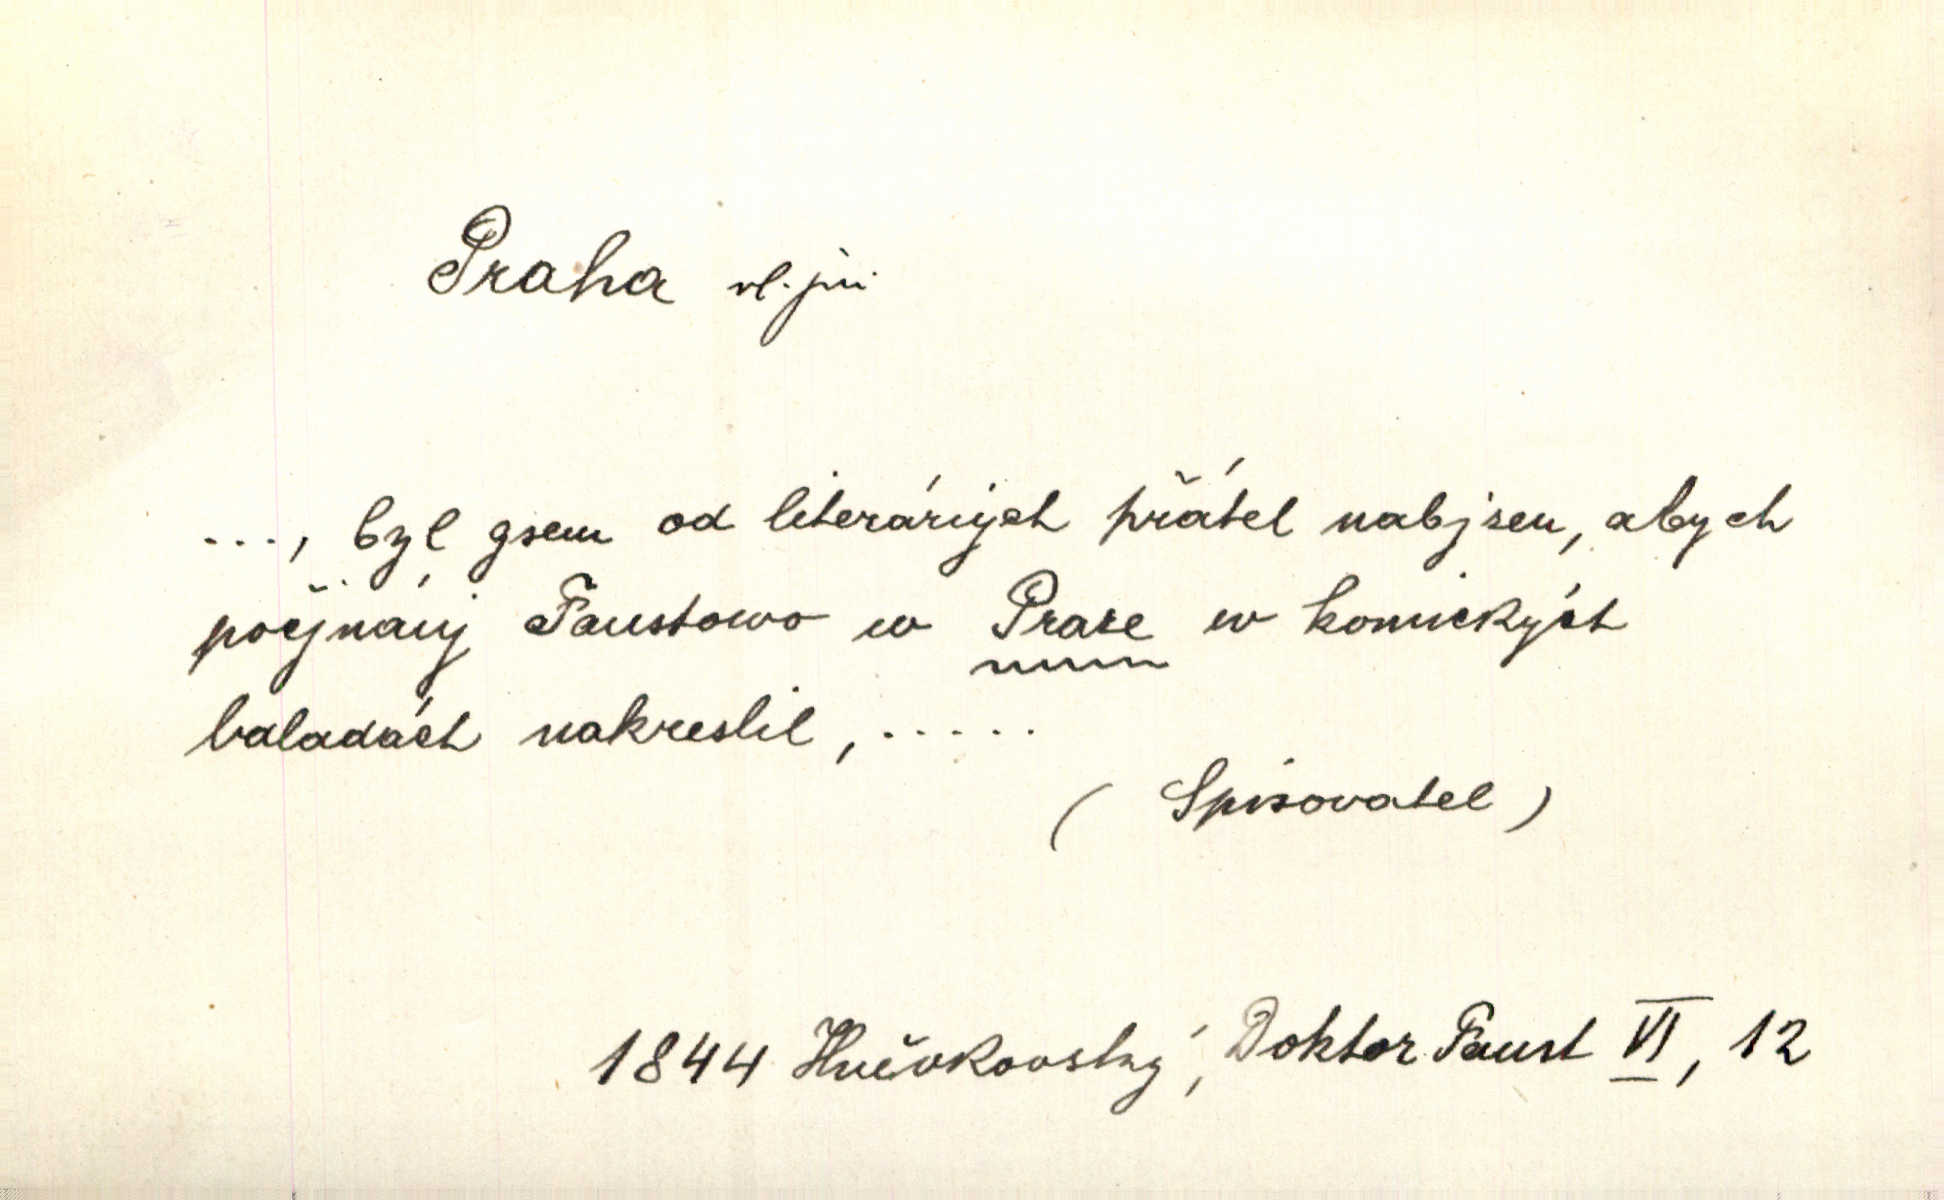 Praha vl. jm.
..., byl gsem od literárnjch přátel nabjzen, abych
počjnánj Faustowo w Praze w komických
baladách nakreslil, .....
( Spisovatel )
1844 Hněvkovský, Doktor Faust VI, 12